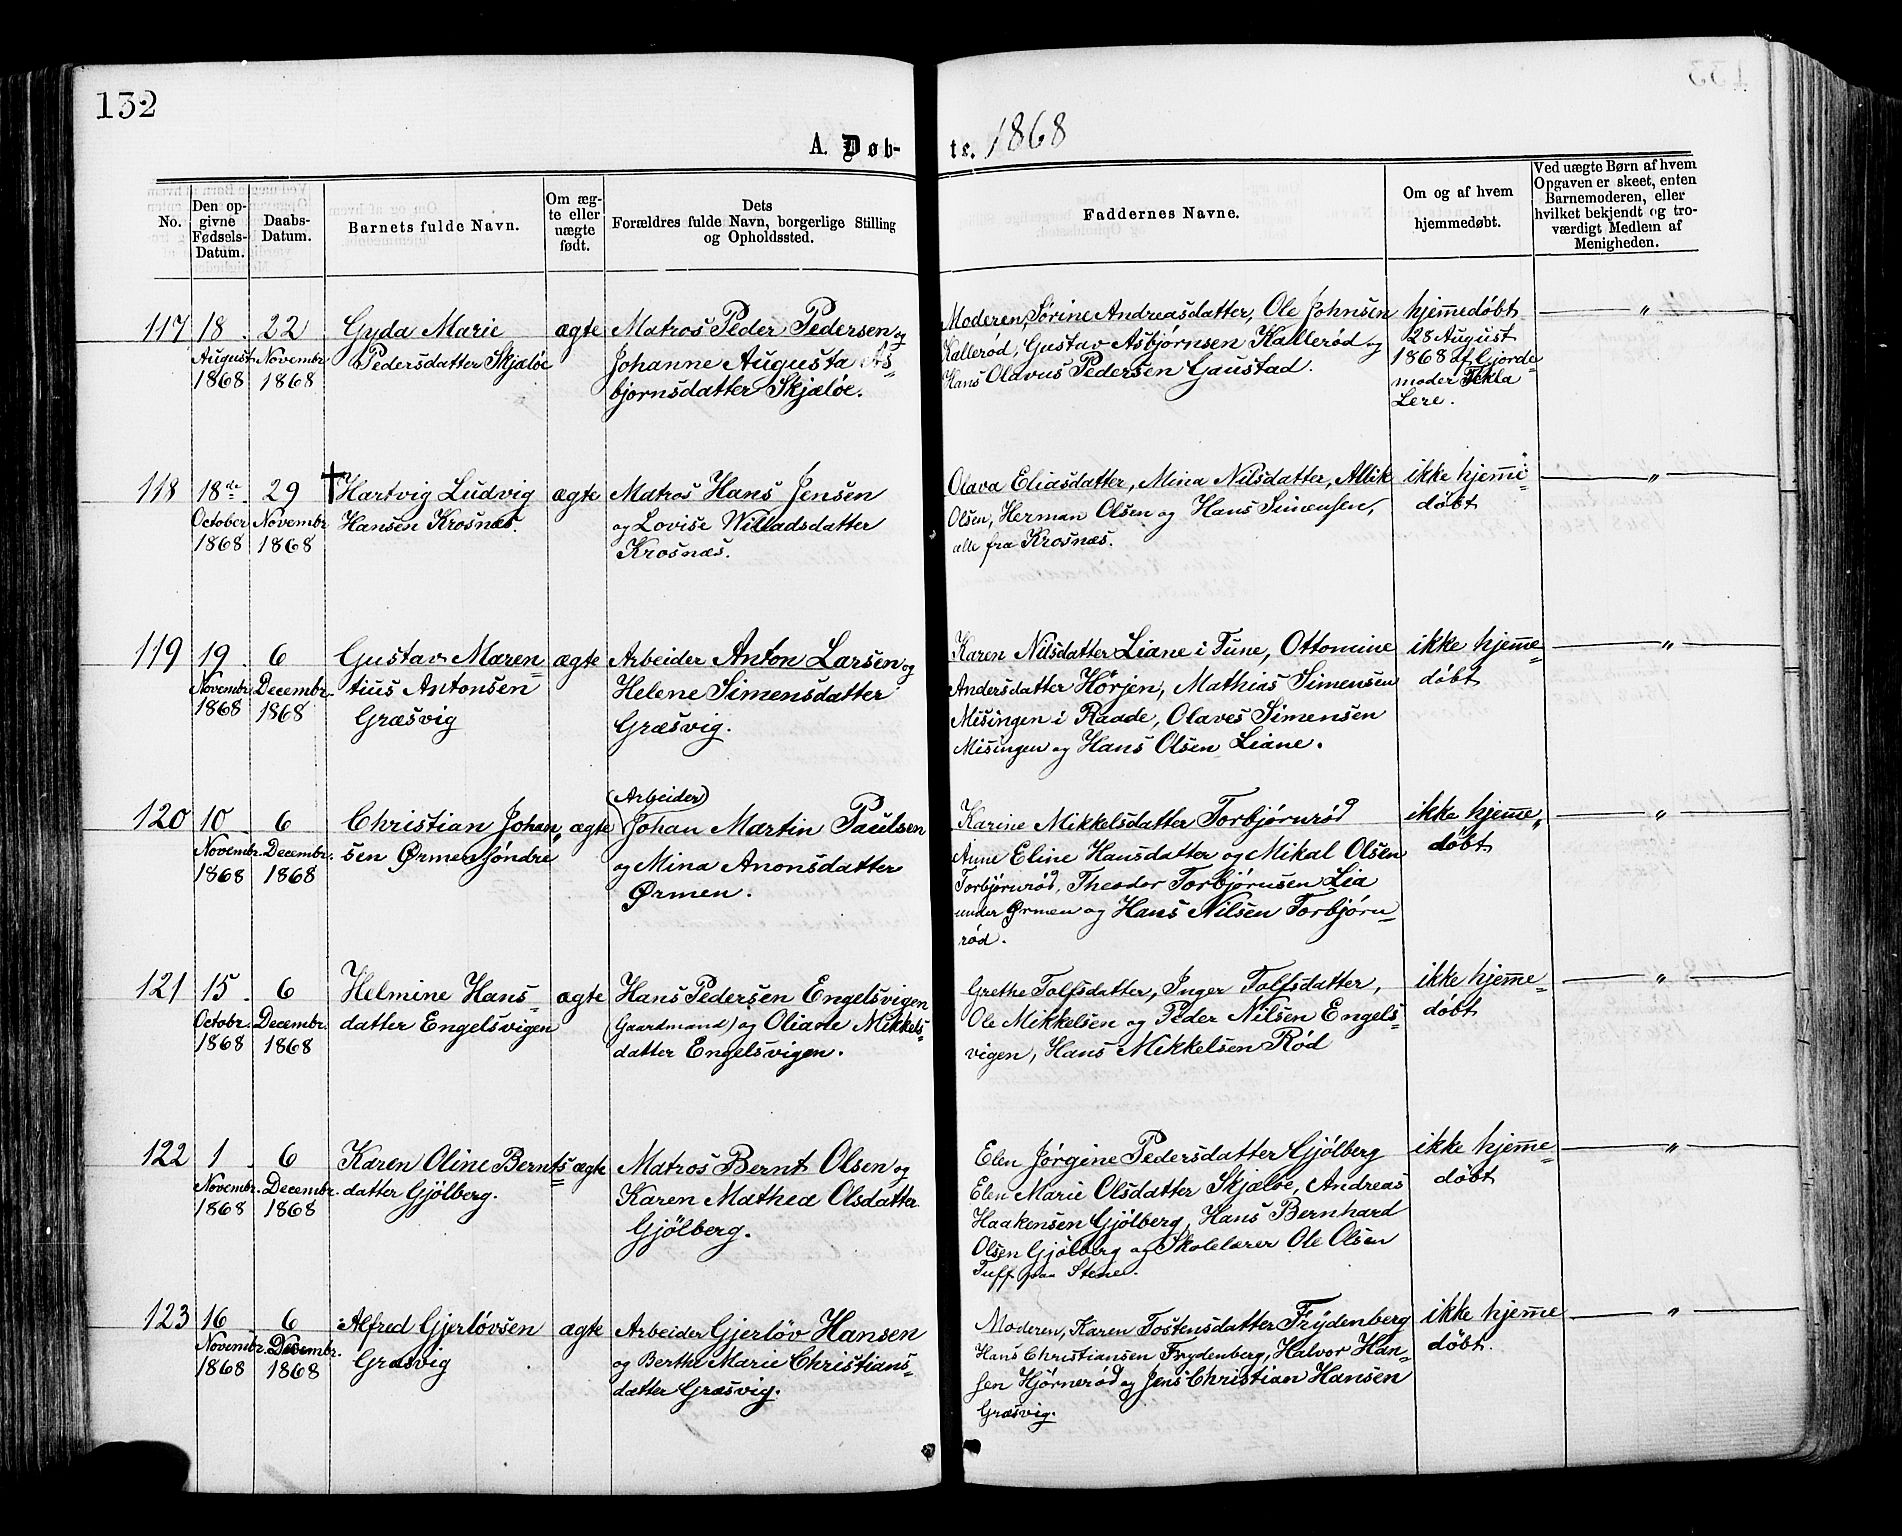 132
A. Døb-
ts. 1868
No.
Den op-
givne
Fødsels-
Datum.
Daabs-
Datum.
Barnets fulde Navn.
Om æg-
te eller
uægte
født.
Dets
Forældres fulde Navn, borgerlige Stilling
og Opholdssted.
Faddernes Navne.
Om og af hvem
hjemmedøbt.
Ved uægte Børn af hvem
Opgaven er skeet, enten
Barnemoderen, eller
hvilket bekjendt og tro-
værdigt Medlem af
Menigheden.
117
18
August
1868
22
Novembr.
1868
Gyda Marie
Pedersdatter Skjæløe
ægte
Matros Peder Pedersen og
Johanne Augusta As-
bjørnsdatter Skjæløe.
Moderen, Sørine Andreasdatter, Ole Johnsen
Kallerød, Gustav Asbjørnsen Kallerød og
Hans Olavus Pedersen Gaustad.
hjemmedøbt
28 August
1868 af Gjorde-
moder Tekla
Lere.
"
118
18de
October
1868
29
Novembr
1868
† Hartvig Ludvig
Hansen Krosnæs.
ægte
Matros Hans Jensen
og Lovise Willadsdatter
Krosnæs.
Olava Eliasdatter, Mina Nilsdatter, Allik
Olsen, Herman Olsen og Hans Simensen,
alle fra Krosnæs.
ikke hjemme-
døbt
"
119
19.
Novembr.
1868
6
Decembr.
1868
Gustav Maren-
tius Antonsen
Græsvig
ægte
Arbeider Anton Larsen og
Helene Simensdatter
Græsvig.
Karen Nilsdatter Liane i Tune, Ottomine
Andersdatter Hørjen, Mathias Simensen
Misingen i Raade, Olaves Simensen
Misingen og Hans Olsen Liane.
ikke hjemme-
døbt
"
120
10
Novembr.
1868
6
Decembr.
1868
Christian Johan-
sen Ørmen søndre
ægte
(Arbeider)
Johan Martin Paulsen
og Mina Anonsdatter
Ørmen.
Karine Mikkelsdatter Torbjørnrød
Anne Eline Hansdatter og Mikal Olsen
Torbjørnrød, Theodor Torbjørnsen Lia
under Ørmen og Hans Nilsen Torbjørn-
rød.
ikke hjemme-
døbt
"
121
15.
Octobr.
1868
6
Decembr.
1868
Helmine Hans-
datter Engelsvigen
ægte
Hans Pedersen Engelsvigen
(Gaardmand) og Oliane Mikkels-
datter Engelsvigen.
Grethe Tolfsdatter, Inger Tolfsdatter,
Ole Mikkelsen og Peder Nilsen Engels-
vigen, Hans Mikkelsen Rød
ikke hjemme-
døbt
"
122
1.
Novembr.
1868
6
Decembr.
1868
Karen Oline Bernts-
datter Gjølberg.
ægte
Matros Bernt Olsen og
Karen Mathea Olsdatter
Gjølberg.
Elen Jørgine Pedersdatter Gjølberg
Elen Marie Olsdatter Skjæløe, Andreas
Haakensen Gjølberg, Hans Bernhard
Olsen Gjølberg og Skolelærer Ole Olsen
Tuff paa Stene.
ikke hjemme-
døbt
"
123
16
Novembr.
1868
6
Decembr.
1868
Alfred Gjerløvsen
Græsvig
ægte
Arbeider Gjerløv Hansen
og Berthe Marie Christians-
datter Græsvig.
Moderen, Karen Tostensdatter Frydenberg
Hans Christiansen Frydenberg, Halvor Han-
sen Hjørnerød og Jens Christian Hansen
Græsvig.
ikke hjemme
døbt.
"